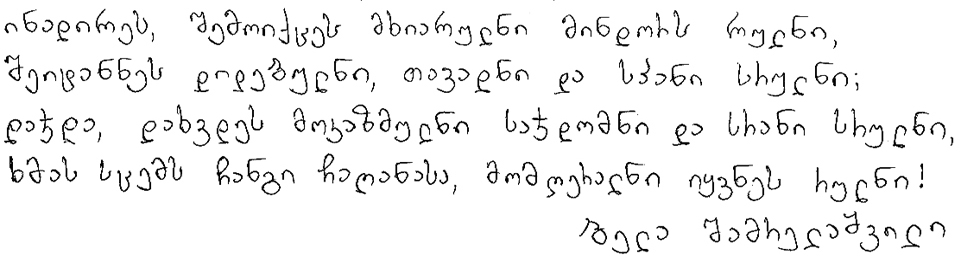 ინადირეს, შემოიქცეს მხიარულნი მინდორს რულნი,
შეიტანნეს დიდებულნი, თავადნი და სპანი სრულნი;
დაჯდა, დახვდეს მოკაზმულნი საჯდომნი და სრანი სრულნი,
ხმას სცემს ჩანგი ჩაღანასა, მომღერალნი იყვნეს რულნი!
ბელა შამრელაშვილი